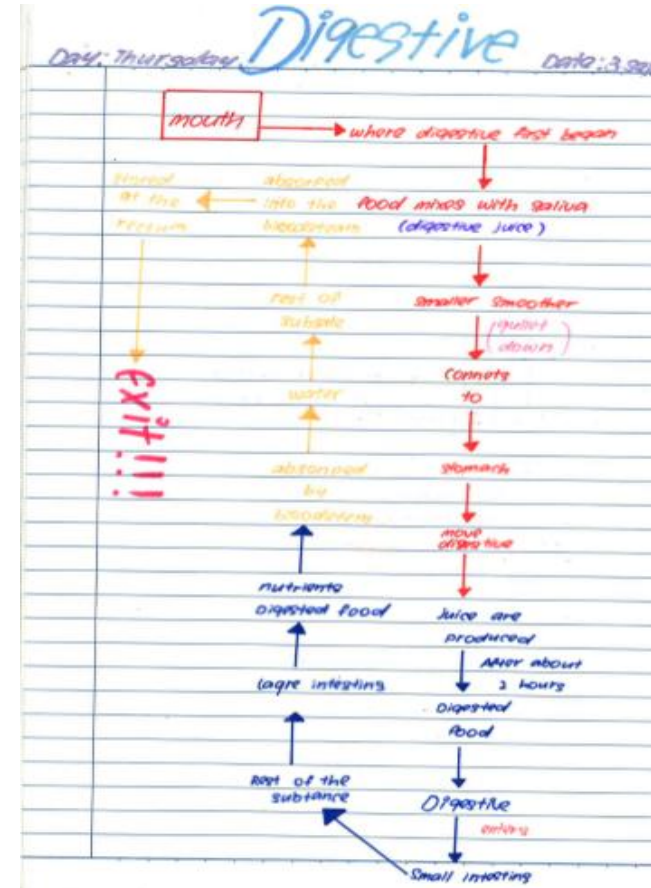 Digestive
Day: Thursday
Date: 3 Sep
mouth
where digestive first began
food mixes with saliva
(digestive juice)
smaller smoother
(gullet
down)
Connets
to
stomach
move
digestive
Juice are
produced
After about
2 hours
Digested
food
Digestive
enters
Small intesting
Rest of the
subtance
Lagre intesting
nutrients
Digested food
absorped
by
water
rest of
absorped
into the
stored
at the
rectum
Exit!!!